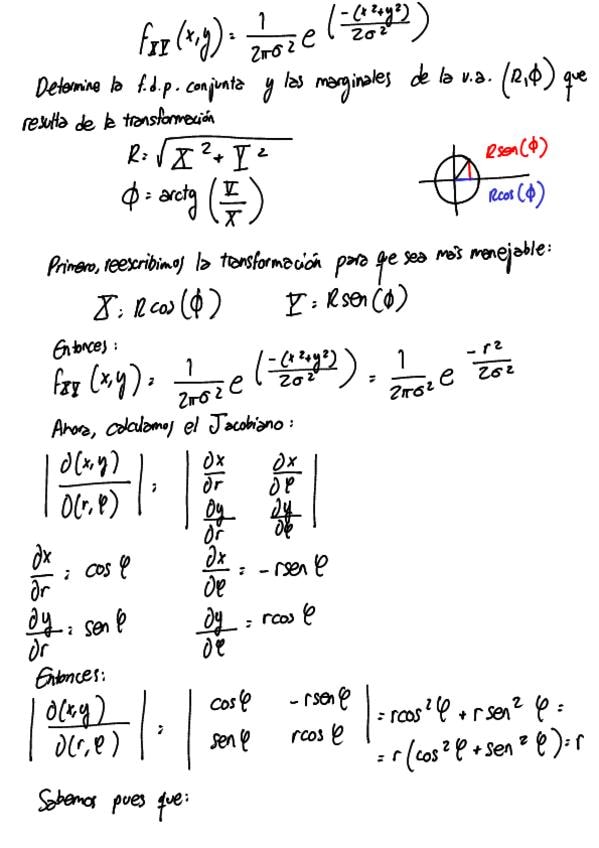 f_XY (x,y) = 1/(2πσ²) e^(-(x²+y²)/2σ²)
Determine la f.d.p. conjunta y las marginales de la v.a. (R,ϕ) que
resulta de la transformación
R = √(X² + Y²)
ϕ = arctg (Y/X)
Rsen(ϕ)
Rcos(ϕ)
Primero, reescribimos la transformación para que sea más manejable:
X = Rcos(ϕ) Y = Rsen(ϕ)
Entonces:
f_XY (x,y) = 1/(2πσ²) e^(-(x²+y²)/2σ²) = 1/(2πσ²) e^(-r²/2σ²)
Ahora, calculamos el Jacobiano:
|∂(x,y)/∂(r,φ)| = |∂x/∂r ∂x/∂φ; ∂y/∂r ∂y/∂φ|
∂x/∂r = cos φ ∂x/∂φ = -rsen φ
∂y/∂r = sen φ ∂y/∂φ = rcos φ
Entonces:
|∂(x,y)/∂(r,φ)| = |cosφ -rsenφ; senφ rcosφ| = rcos²φ + rsen²φ =
= r(cos²φ + sen²φ) = r
Sabemos pues que: